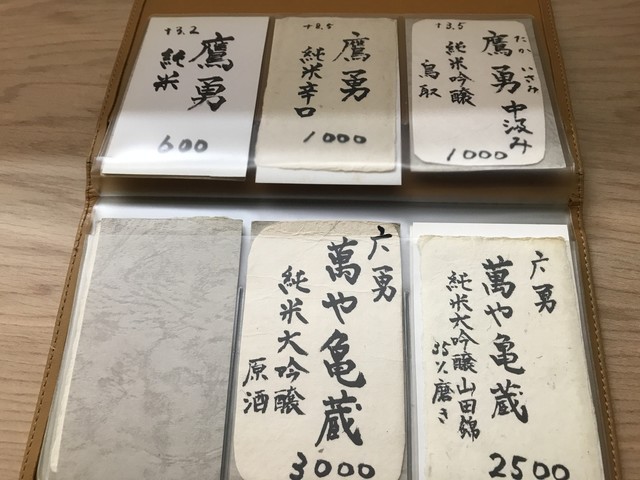 +3.5
たか いさみ
鷹勇 中汲み
純米吟醸
鳥取
1000
+8.5
鷹勇
純米辛口
1000
+3.2
鷹勇
純米
600
六勇
萬や亀蔵
純米大吟醸 山田錦
35%磨き
2500
六勇
萬や亀蔵
純米大吟醸
原酒
3000